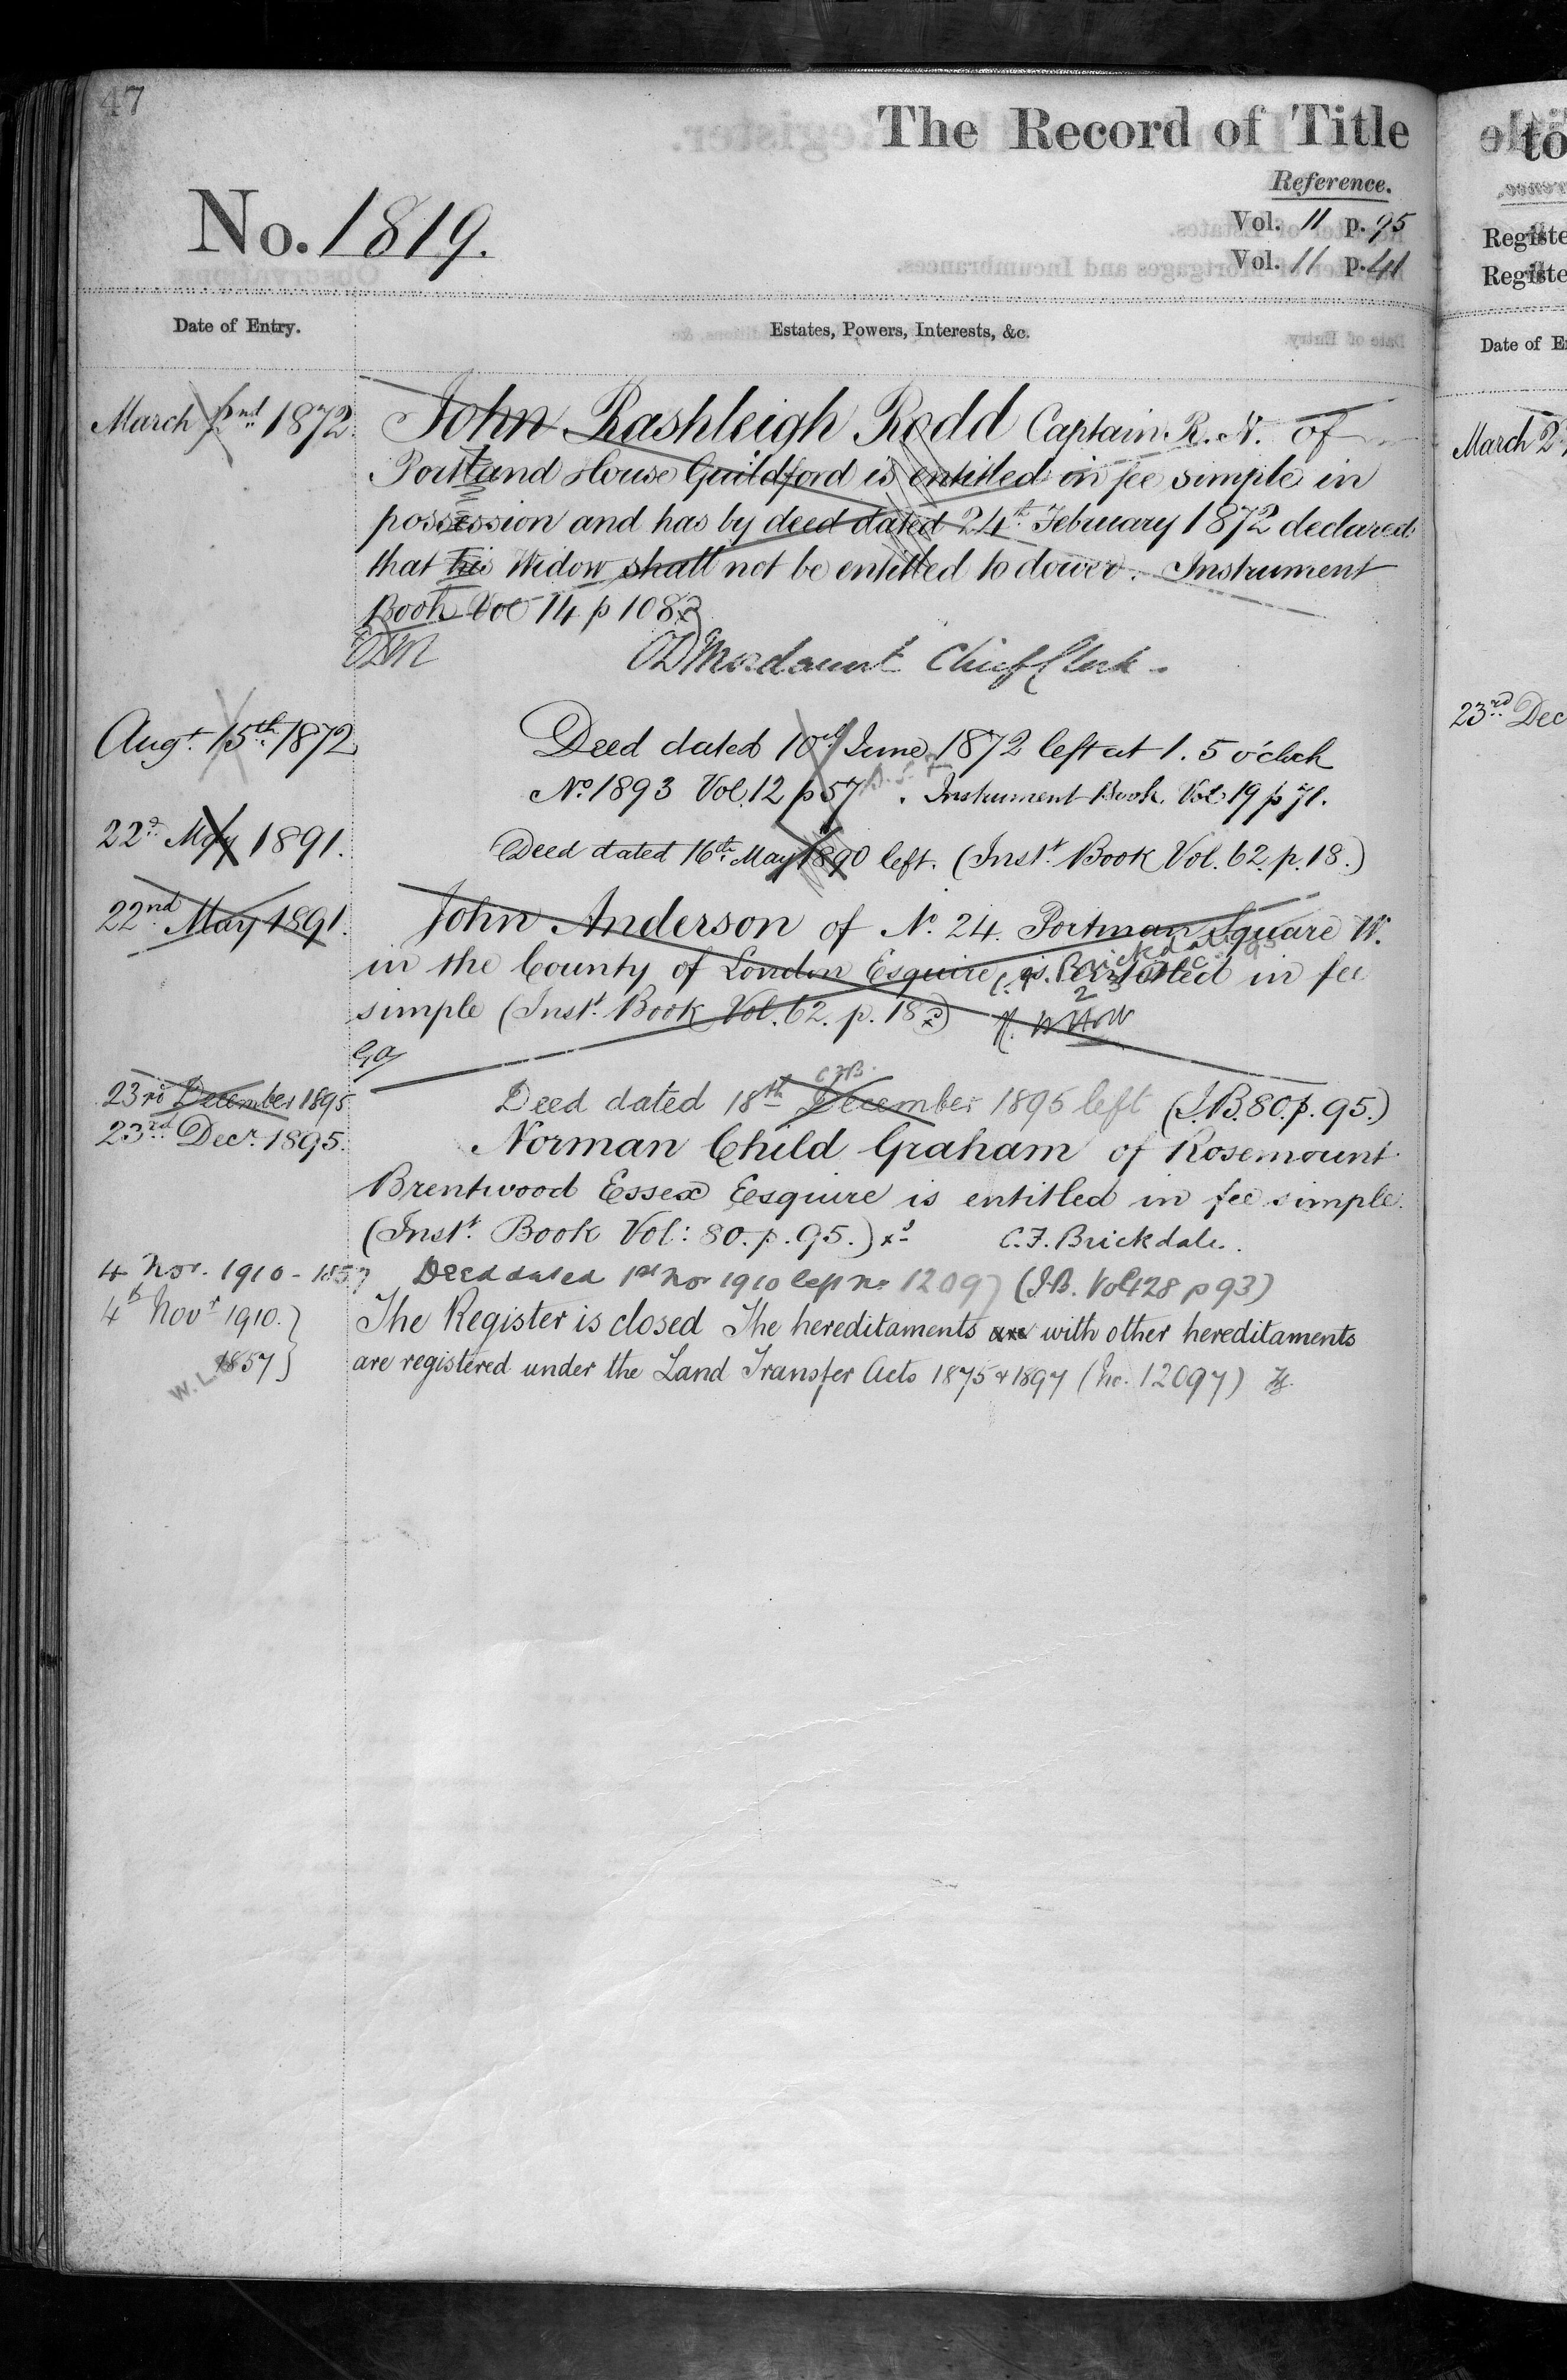 47
The Record of Title
Reference.
No. 1819.
Vol. 11 p. 95
Vol. 11 p. 41
Date of Entry.
Estates, Powers, Interests, &c.
March 2nd 1872.
John Rashleigh Rodd Captain R.N. of
Portland House Guildford is entitled in fee simple in
possession and has by deed dated 24th February 1872 declared
that his Widow shall not be entitled to dower. Instrument
Book Vol 14 p 108
ODM
OD Mordaunt Chief Clerk.
Augt. 15th 1872
Deed dated 10th June 1872 left at 1.5 o'clock
No. 1893 Vol. 12 p 57. Instrument Book Vol 19 p 71.
22d. May 1891.
Deed dated 16th May 1890 left. (Inst. Book Vol. 62. p. 18.)
22nd May 1891.
John Anderson of No. 24. Portman Square W.
in the County of London Esquire, is entitled in fee
simple (Inst. Book Vol. 62. p. 18)
23rd December 1895
C.F.B.
Deed dated 18th December 1895 left (I.B. 80. p. 95.)
23rd Decr. 1895.
Norman Child Graham of Rosemount
Brentwood Essex Esquire is entitled in fee simple.
(Inst. Book Vol: 80. p. 95.)
C.F. Brickdale.
4 Nov. 1910 - 1857
Deed dated 1st Nov 1910 left No 12097 (I.B. Vol 128 p 93)
4th Novr 1910.
1857
The Register is closed The hereditaments are with other hereditaments
are registered under the Land Transfer Acts 1875 & 1897 (No. 12097)
W.L.
Registe
Registe
Date of E
March 2
23rd Dec